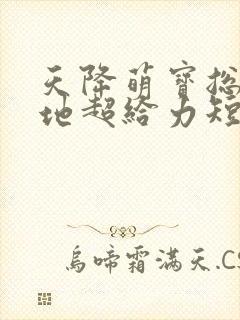 天降萌寶捴
地超給力短
烏啼霜滿天.CS